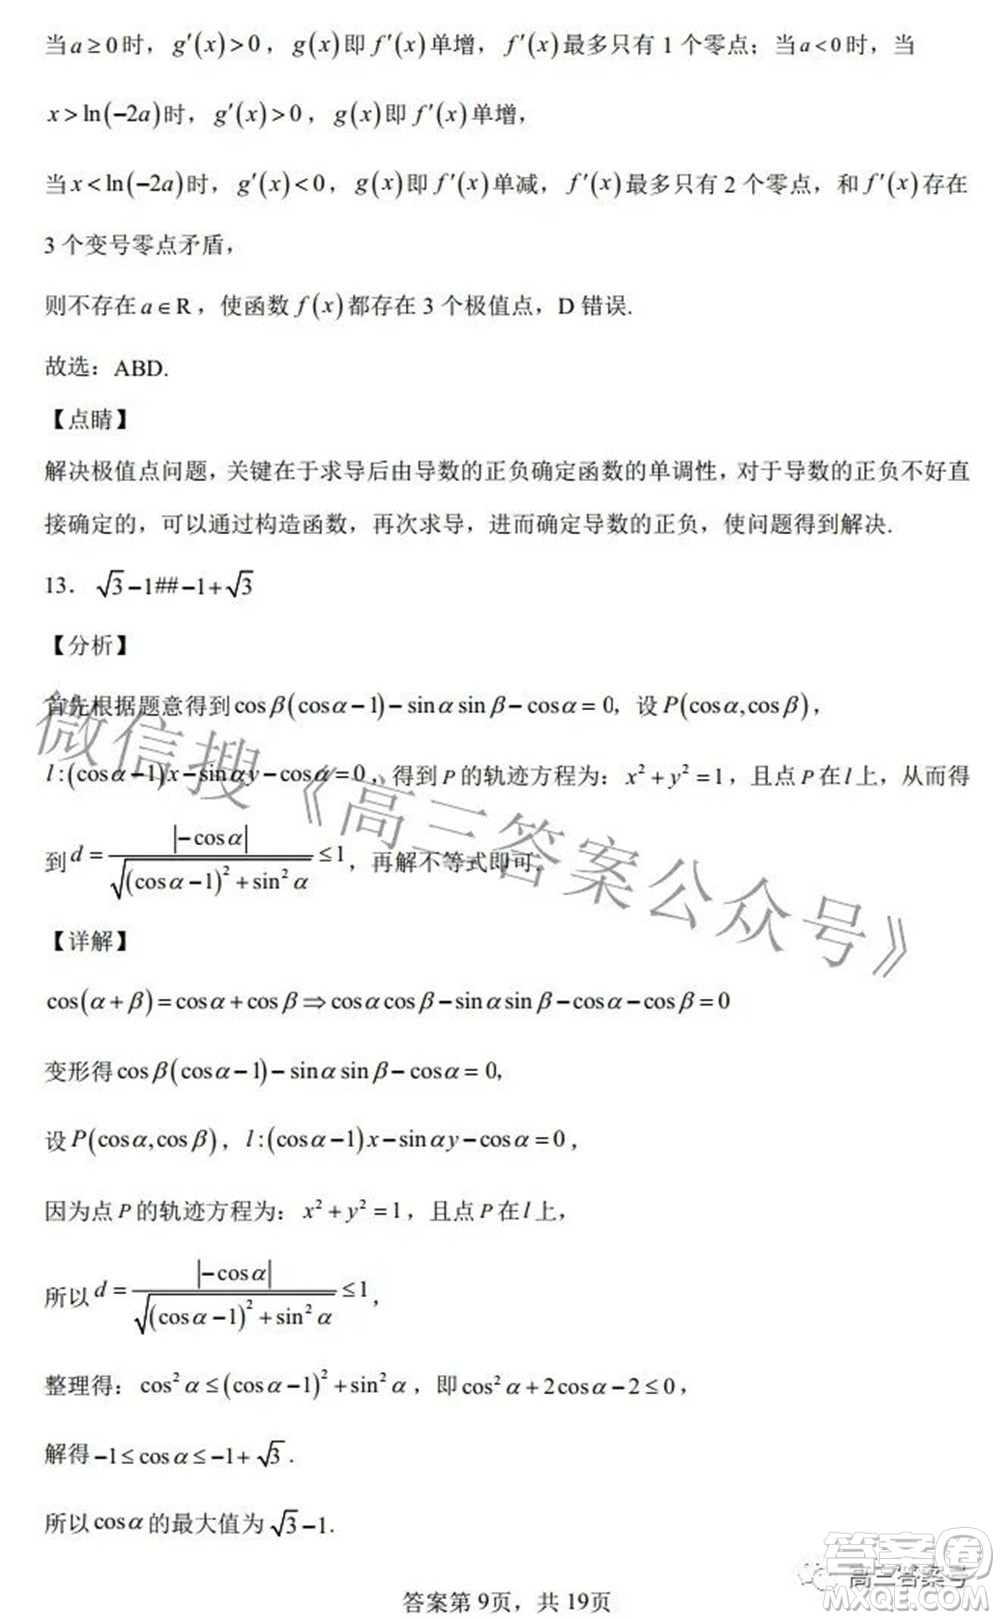 当 a ≥ 0 时，g′(x) > 0，g(x) 即 f′(x) 单增，f′(x) 最多只有 1 个零点；当 a < 0 时，当
x > ln(−2a) 时，g′(x) > 0，g(x) 即 f′(x) 单增，
当 x < ln(−2a) 时，g′(x) < 0，g(x) 即 f′(x) 单减，f′(x) 最多只有 2 个零点，和 f′(x) 存在
3 个变号零点矛盾，
则不存在 a ∈ R，使函数 f(x) 都存在 3 个极值点，D 错误.
故选：ABD.
【点睛】
解决极值点问题，关键在于求导后由导数的正负确定函数的单调性，对于导数的正负不好直
接确定的，可以通过构造函数，再次求导，进而确定导数的正负，使问题得到解决.
13． √3−1##−1+√3
【分析】
首先根据题意得到 cos β(cos α−1)−sin α sin β−cos α = 0，设 P(cos α, cos β)，
l:(cos α−1)x−sin αy−cos α=0，得到 P 的轨迹方程为：x²+y²=1，且点 P 在 l 上，从而得
到 d = |−cos α| / √((cos α−1)²+sin² α) ≤ 1，再解不等式即可.
【详解】
cos(α+β)=cos α+cos β⇒cos α cos β−sin α sin β−cos α−cos β=0
变形得 cos β(cos α−1)−sin α sin β−cos α = 0，
设 P(cos α, cos β)，l:(cos α−1)x−sin αy−cos α=0，
因为点 P 的轨迹方程为：x²+y²=1，且点 P 在 l 上，
所以 d = |−cos α| / √((cos α−1)²+sin² α) ≤ 1，
整理得：cos² α ≤ (cos α−1)²+sin² α，即 cos² α+2cos α−2 ≤ 0，
解得 −1 ≤ cos α ≤ −1+√3.
所以 cos α 的最大值为 √3−1.
答案第 9页，共 19页
微信搜《高三答案公众号》
答案圈
高三答案号